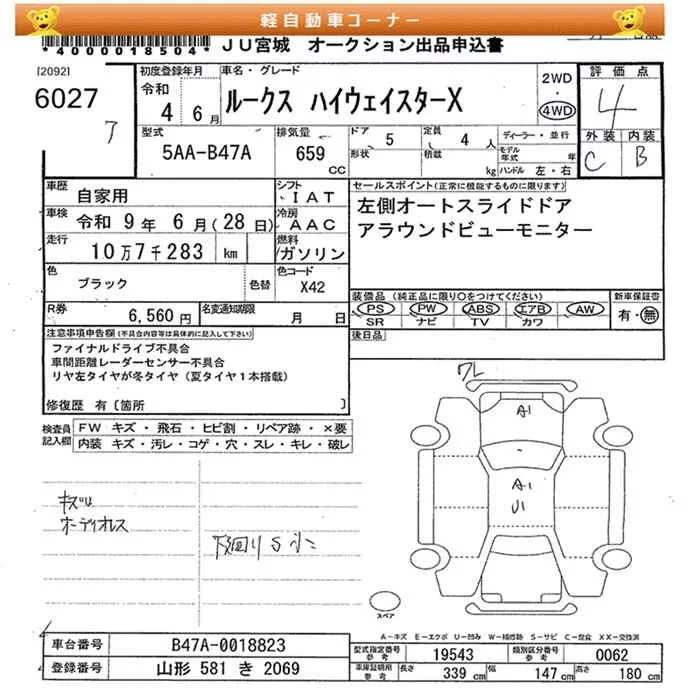 軽自動車コーナー
*40000018504*
JU宮城 オークション出品申込書
[2092]
6027
ア
初度登録年月
令和
4 6月
車名・グレード
ルークス ハイウェイスターX
2WD
・
4WD
評価点
4
外装 内装
C B
型式
5AA-B47A
排気量
659
CC
ドア 5
形状
定員 4 人
積載 kg
ディーラー・並行
モデル年式 年
ハンドル 左・右
車歴
自家用
シフト
IAT
車検
令和 9年 6月(28日)
冷房
AAC
走行
10万7千283 km
燃料
ガソリン
色
ブラック
色替
色コード
X42
R券
6,560円
名変通知期限
月 日
セールスポイント(正常に機能するものに限ります)
左側オートスライドドア
アラウンドビューモニター
装備品 (純正品に限り○をつけてください)
PS PW ABS エアB AW
SR ナビ TV カワ
新車保証書
有・無
後日品
注意事項申告欄(不具合内容等は具体的に記入して下さい)
ファイナルドライブ不具合
車間距離レーダーセンサー不具合
リヤ左タイヤが冬タイヤ(夏タイヤ1本搭載)
修復歴 有〔箇所 〕
検査員記入欄
FW キズ・飛石・ヒビ割・リペア跡・×要
内装 キズ・汚レ・コゲ・穴・スレ・キレ・破レ
ワレ
A1
A1
U1
キズU
オーディオレス
下回りS小
スペア
A-キズ E-エクボ U-凹み W-補修跡 S-サビ C-腐食 XX-交換済
車台番号
B47A-0018823
登録番号
山形 581 き 2069
型式指定番号
参考
19543
類別区分番号
参考
0062
車庫証明用
参考
長さ
339 cm
幅
147 cm
高さ
180 cm